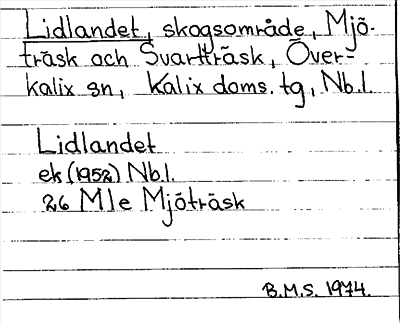 Lidlandet, skogsområde, Mjö-
träsk och Svartträsk, Över-
kalix sn, Kalix doms. tg, Nb.l.
Lidlandet
ek (1952) Nb.l.
26 M l e Mjöträsk
B.M.S. 1974.